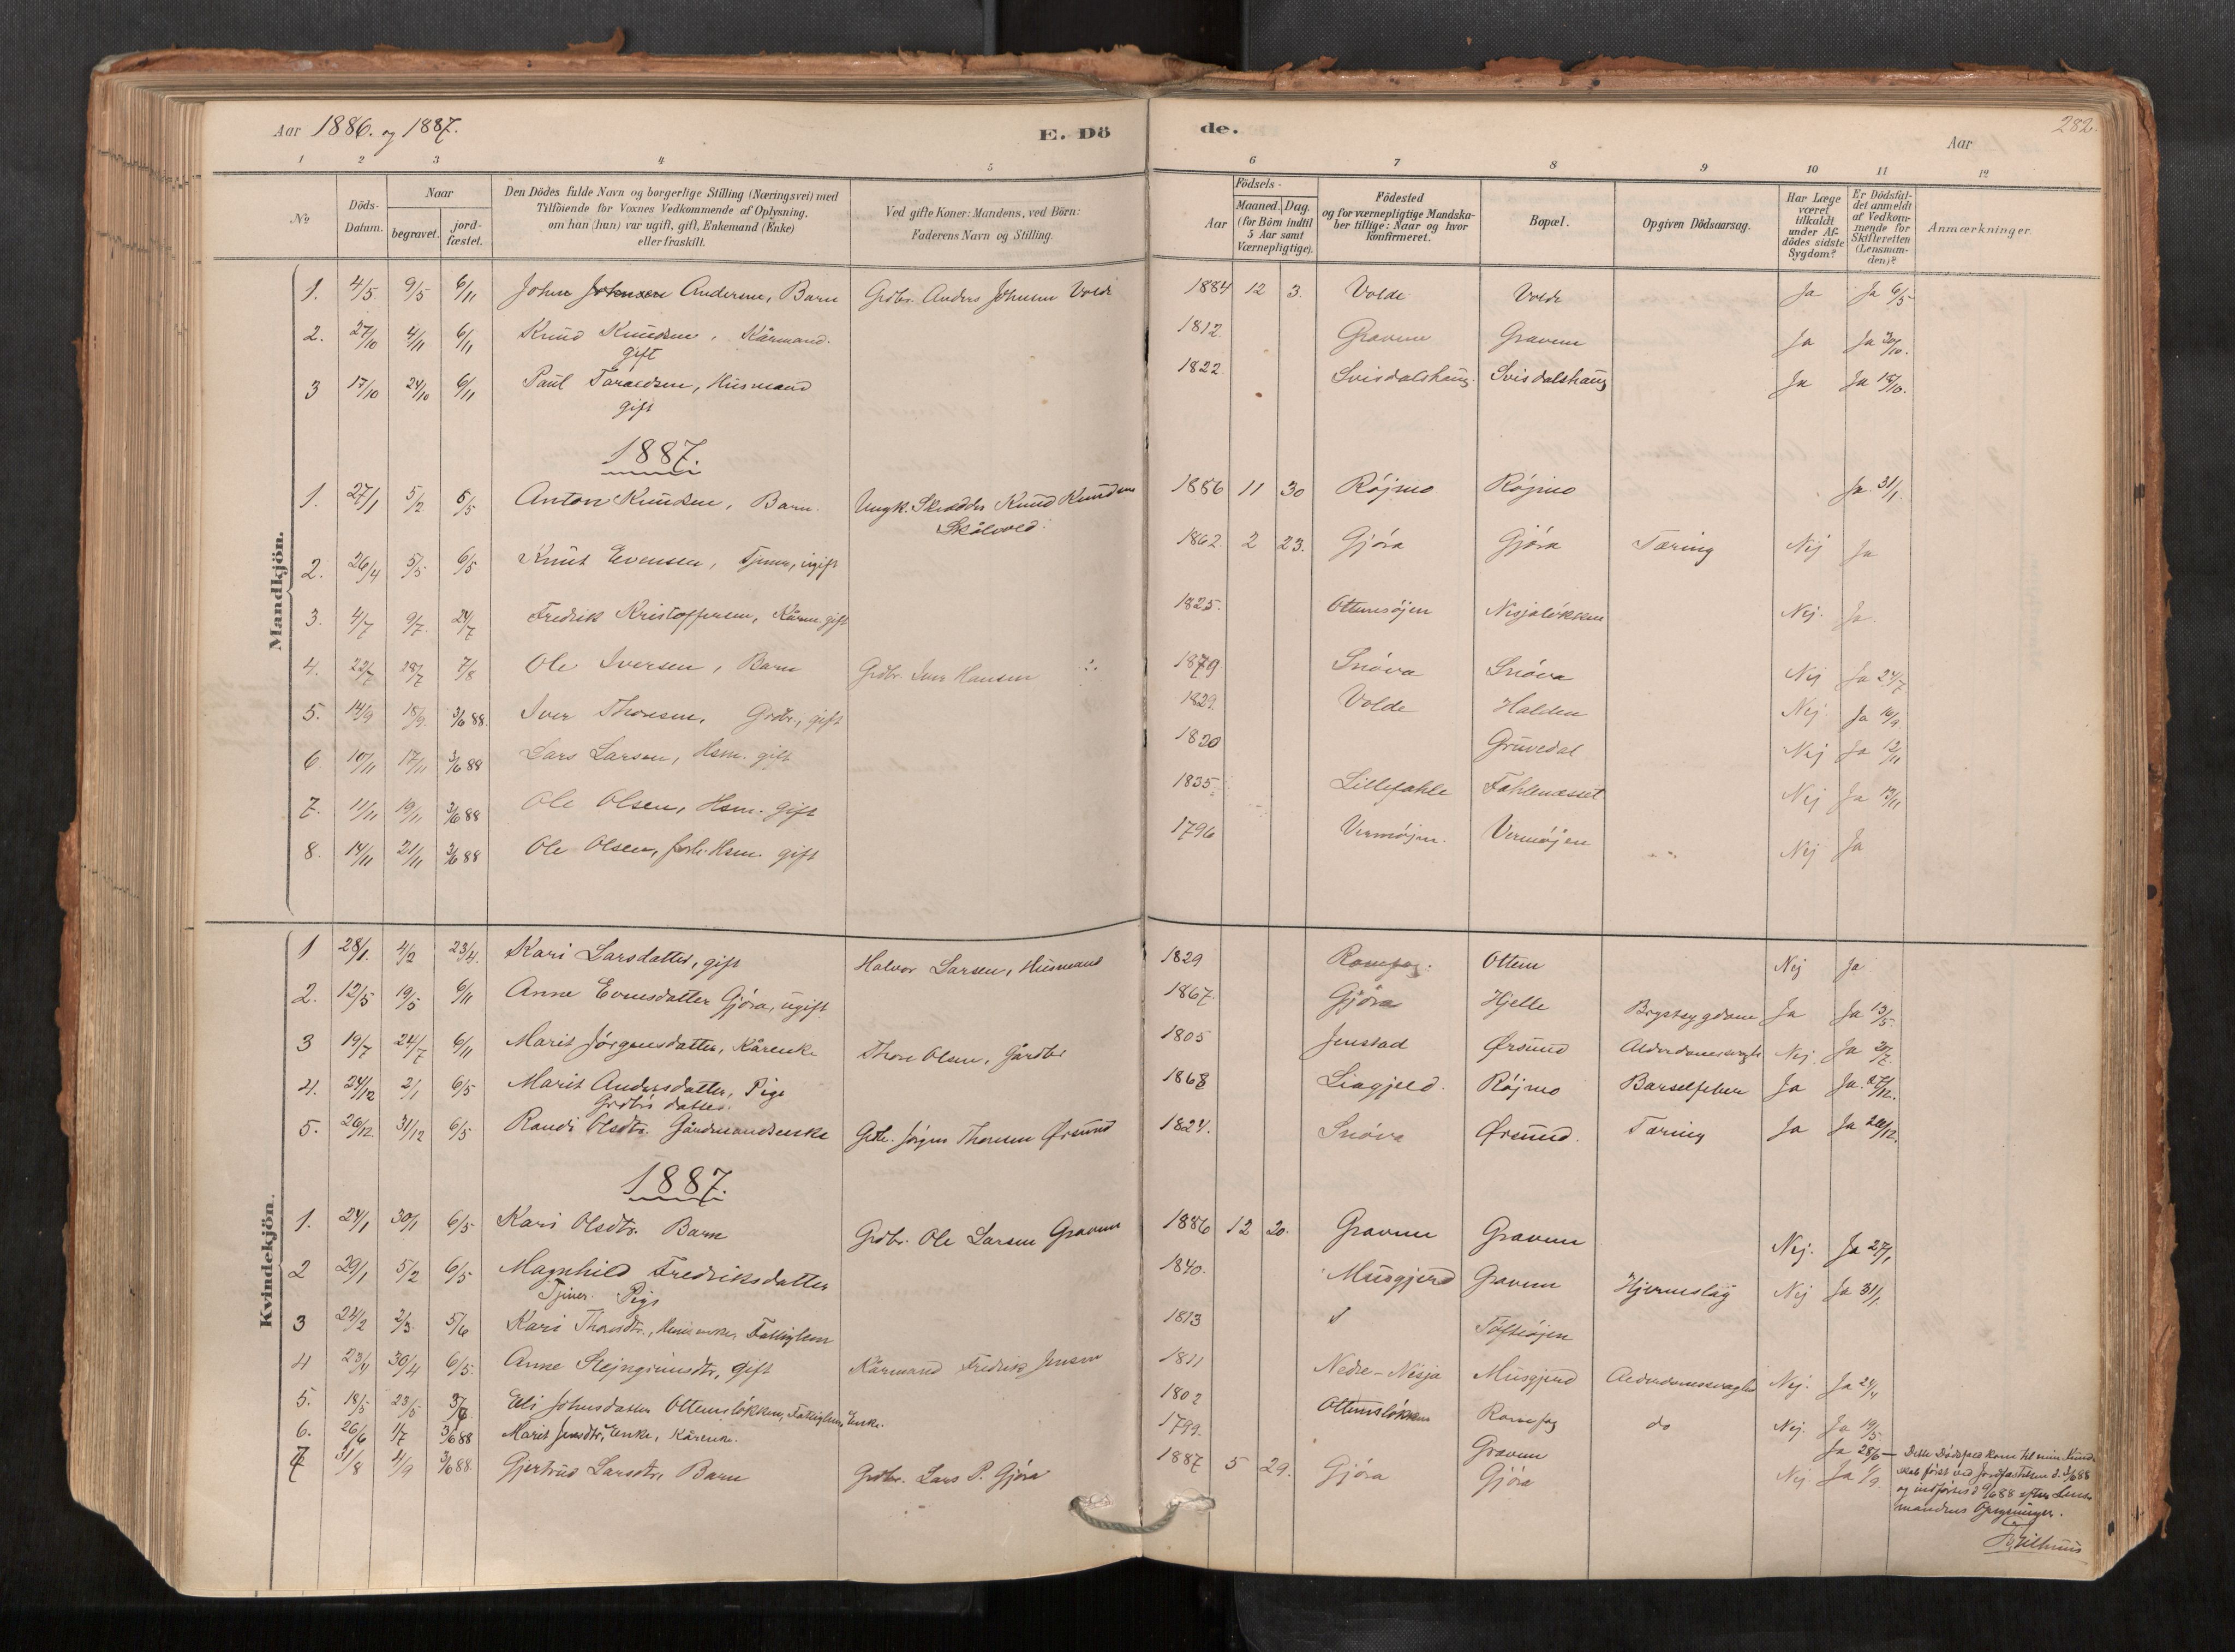 Aar 1886. og 1887.
E. Dö
de.
Aar
282.
1 2 3 4 5 6 7 8 9 10 11 12
No
Döds-Datum.
Naar
begravet.
jord-fæstet.
Den Dödes fulde Navn og borgerlige Stilling (Næringsvei) med
Tilföiende for Voxnes Vedkommende af Oplysning,
om han (hun) var ugift, gift, Enkemand (Enke)
eller fraskilt.
Ved gifte Koner: Mandens, ved Börn:
Faderens Navn og Stilling.
Födsels-
Aar
Maaned. Dag.
(for Börn indtil
5 Aar samt
Værnepligtige).
Födested
og for værnepligtige Mandska-
ber tillige: Naar og hvor
konfirmeret.
Bopæl.
Opgiven Dödsaarsag.
Har Læge
været
tilkaldt
under Af-
dödes sidste
Sygdom?
Er Dödsfal-
det anmeldt
af Vedkom-
mende for
Skifteretten
(Lensman-
den)?
Anmærkninger.
Mandkjön.
1. 4/5 9/5 6/11 John Johnsen Andersen, Barn Grdbr. Anders Johnsen Volde 1884 12 3. Volde Volde Ja Ja 6/5
2. 27/10 4/11 6/11 Knud Knudsen, Kårmand. 1812. Gravem Gravem Ja Ja 30/10.
gift
3 17/10 24/10 6/11 Paul Taraldsen, Husmand 1822. Svisdalshaug. Svisdalshaug Ja Ja 18/10.
gift
1887.
1. 27/1 5/2 6/5 Anton Knudsen, Barn. Ungk. Skrædder Knud Knudsen 1886 11 30 Röjmo Röjmo Ja 31/1.
Skålvold.
2. 26/4 5/5 6/5 Knut Evensen, Tjener, ugift 1862. 2 23. Gjöra Gjöra Tæring Nej Ja
3. 4/7 9/7. 24/7 Fredrik Kristoffersen, Kårm. gift 1825. Ottemsöjen Nisjalökken Nej. Ja.
4. 22/7 28/7 7/8 Ole Iversen, Barn Grdbr. Iver Hansen 1879 Snöva Snöva Nej Ja 24/7
5. 14/9 18/9. 3/6 88. Iver Thoresen, Grdbr., gift 1829. Volde Halden Nej Ja 16/9
6. 10/11 17/11 3/6 88 Lars Larsen, Hsm. gift 1820 Gruvedal Nej Ja 12/11
7. 11/11 19/11 3/6 88 Ole Olsen, Hsm. gift 1835. Lillefahle Fahlenæsset Nej Ja 13/11
8. 14/11 21/11 3/6 88 Ole Olsen, forh. Hsm. gift 1796 Vermöjen. Vermöjen Nej Ja
Kvindekjön.
1 28/1. 4/2 23/4. Kari Larsdatter, gift Halvor Larsen, Husmand 1829 Romfog. Ottem Nej Ja
2. 12/5 19/5 6/11 Anne Evensdatter Gjöra, ugift. 1867. Gjöra Hjelle Brystsygdom Ja Ja 13/5.
3 19/7 24/7 6/11 Marit Jörgensdatter, Kårenke Thore Olsen, Gårdbr 1805 Jenstad Örsund Alderdomssvaghed Nej. Ja 20/7.
4. 24/12 2/1 6/5 Marit Andersdatter, Pige 1868 Liagjeld. Röjmo Barselfeber Ja Ja. 27/12.
Grdbrs datter.
5. 26/12. 31/12 6/5 Randi Olsdtr. Gårdmandsenke Grdbr. Jörgen Thoresen Örsund 1824. Snöva Örsund. Tæring Ja Ja 28/12.
1887.
1. 24/1 30/1 6/5 Kari Olsdtr. Barn Grdbr. Ole Larsen Gravem 1886 12 20. Gravem Gravem Nej. Ja 27/1
2 29/1 5/2 6/5 Magnhild Fredriksdatter 1840. Musgjerd Gravem Hjerneslag Nej Ja 31/1.
Tjener. Pige
3 24/2 2/3. 5/6 Kari Thoresdtr., Fattiglem 1813 Toftöjen
4 23/4 30/4 6/5. Anne Stejngrimsdtr, gift Kårmand Fredrik Jensen 1811 Nedre-Nisja Musgjerd Alderdomssvaghed Nej. Ja 24/4
5. 18/5 23/5 3/7. Eli Johnsdatter Ottemslökken, Fattiglem Enke. 1802 Ottemslökken Romfog do Nej. Ja 19/5.
6. 26/6 1/7 3/6 88 Marit Enke, Kårenke. 1799. Gravem Ja 28/6 — Dette Dödsfald kom til min Kund-
7 31/8 4/9 3/6 88. Gjertrud Larsdtr. Barn Grdbr. Lars P. Gjöra 1887 5 29. Gjöra Gjöra Nej Ja 1/9.
skab först ved Jordfæstelsen d. 3/6 88
og indförtes d 4/6 88 efter Lens-
mandens Opgivninger.